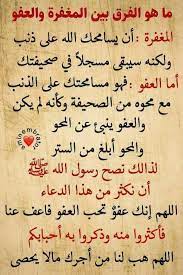 ما هو الفرق بين المغفرة والعفو
المغفرة : أن يسامحك الله على ذنب
ولكنه سيبقى مسجلاً في صحيفتك
أما العفو : فهو مسامحتك على الذنب
مع محوه من الصحيفة وكأنه لم يكن
والعفو ينبئ عن المحو
والمحو أبلغ من الستر
لذالك نصح رسول الله ﷺ
أن نكثر من هذا الدعاء
اللهم إنك عفوٌ تحب العفو فاعف عنا
فأكثروا منه وذكروا به أحبابكم
اللهم هب لنا من أجرك مالا يحصى